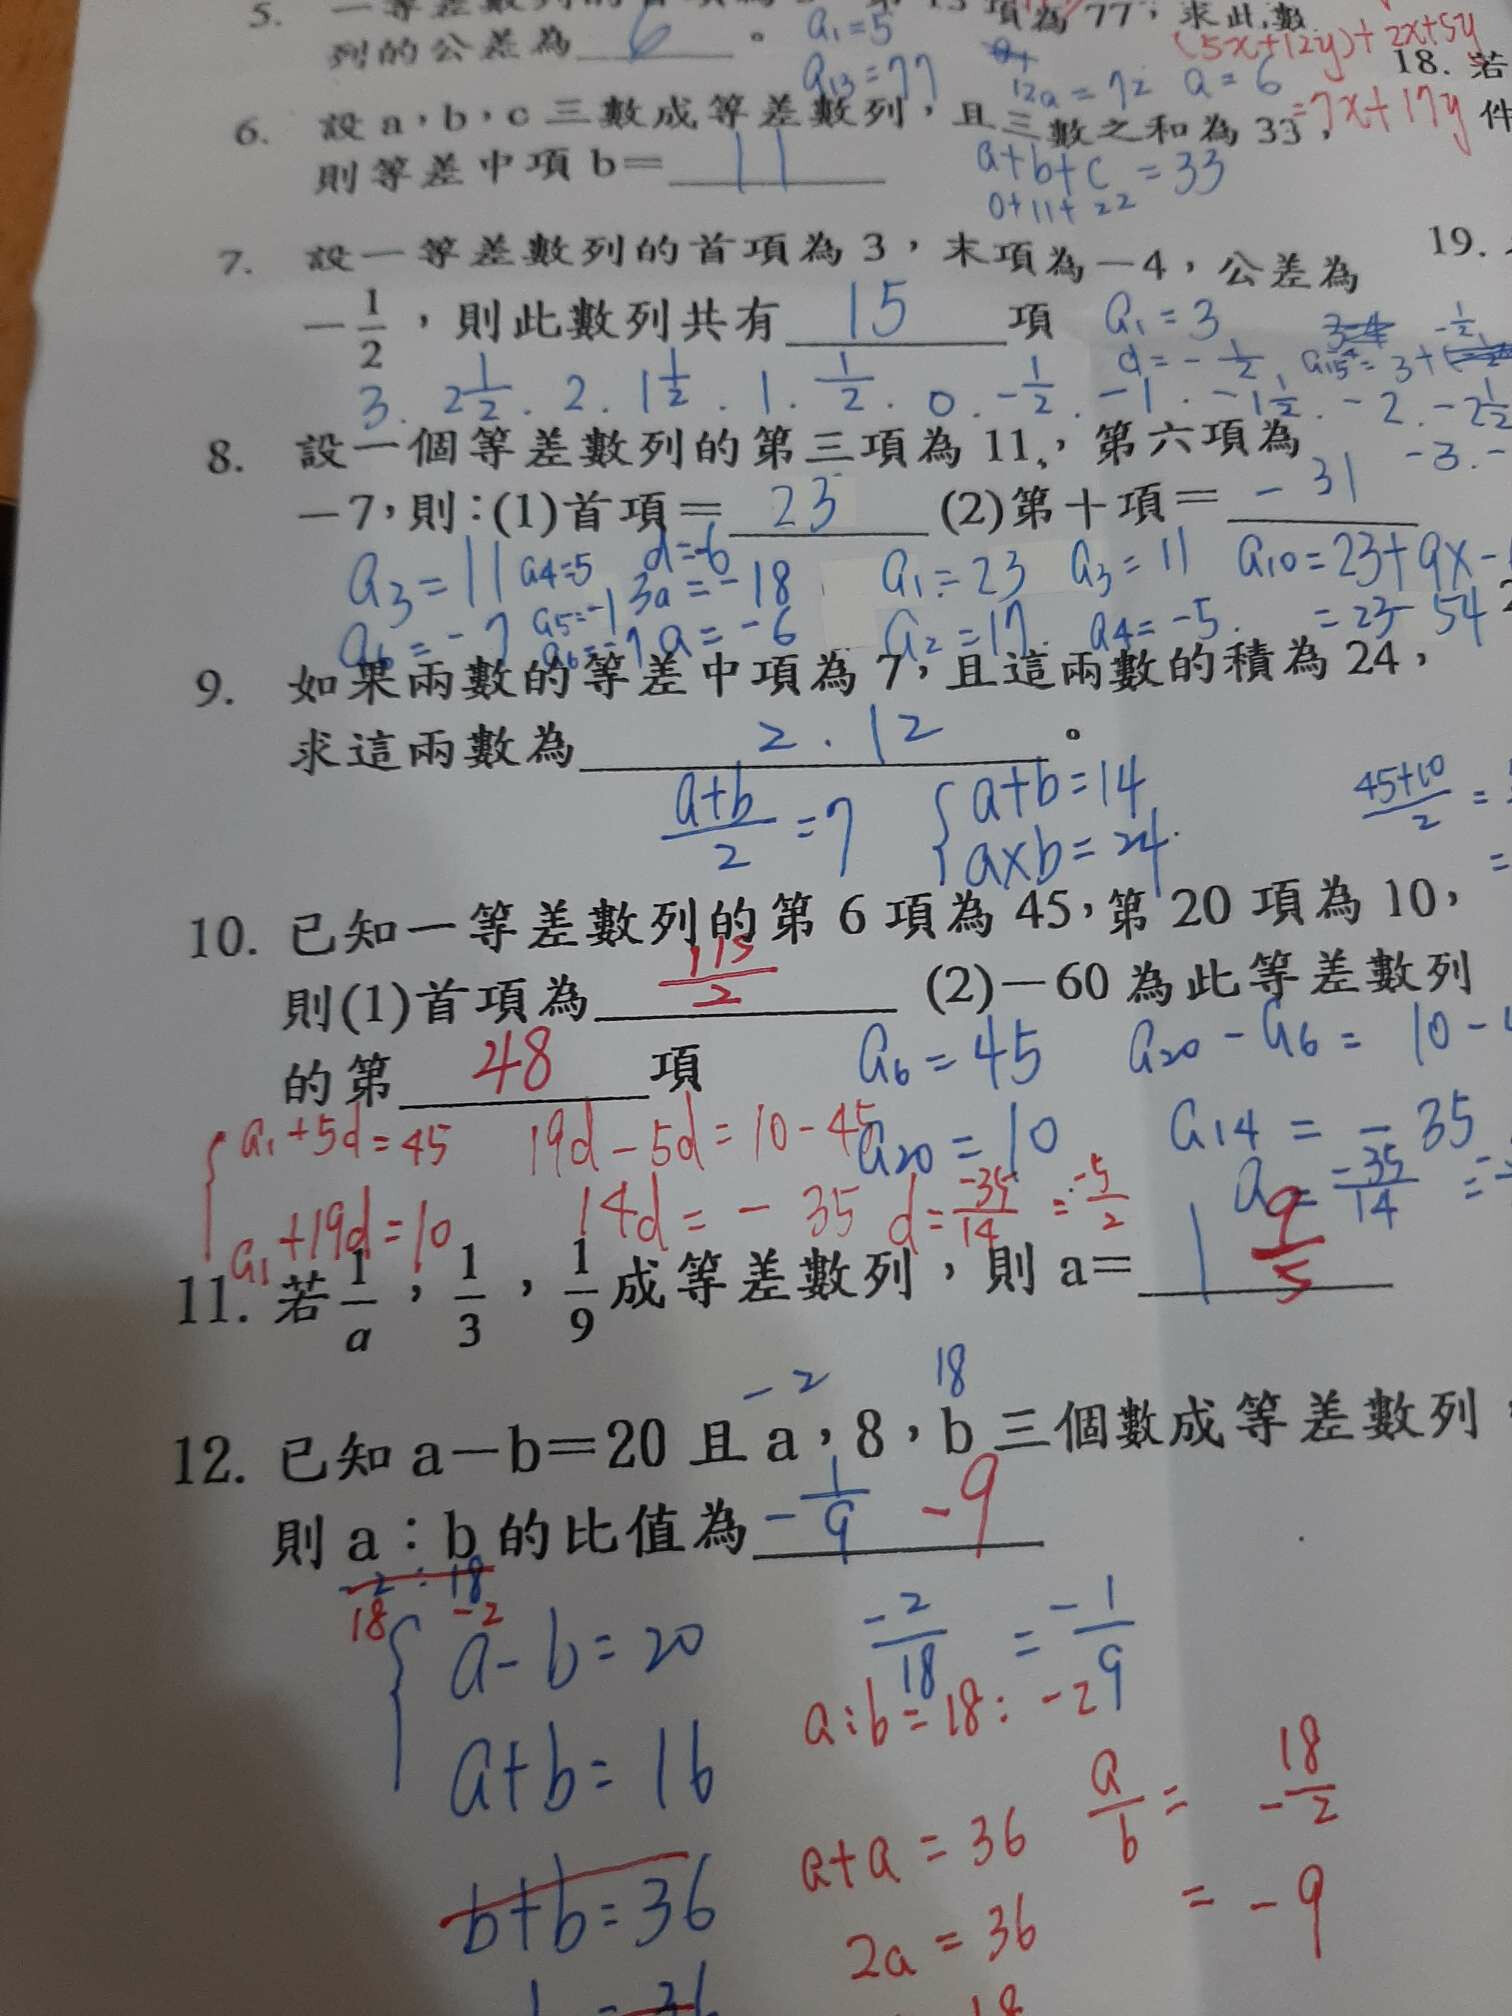 5. 一等差數列的首項為 5，第 13 項為 77，求此數
列的公差為 6 。 a₁=5
a₁₃=77 12a=72 a=6
(5x+12y)+2x+5y
=7x+17y
18. 若
件
6. 設 a，b，c 三數成等差數列，且三數之和為 33，
則等差中項 b= 11
a+b+c=33
0+11+22
7. 設一等差數列的首項為 3，末項為-4，公差為
19.
-1/2，則此數列共有 15 項 a₁=3
d=-1/2
3. 2 1/2. 2. 1 1/2. 1. 1/2. 0. -1/2. -1. -1 1/2. -2. -2 1/2
-3. -
8. 設一個等差數列的第三項為 11，第六項為
-7，則：(1)首項= 23 (2)第十項= -31
a₃=11 a₄=5 d=-6 a₁=23 a₃=11 a₁₀=23+9x-
a₆=-7 a₅=-1 3a=-18 a₂=17. a₄=-5. =23-54
a₆=-7 a=-6
9. 如果兩數的等差中項為 7，且這兩數的積為 24，
求這兩數為 2.12 。
(a+b)/2=7 {a+b=14
axb=24.
(45+10)/2=
=
10. 已知一等差數列的第 6 項為 45，第 20 項為 10，
則(1)首項為 115/2 (2)-60 為此等差數列
的第 48 項 a₆=45 a₂₀-a₆=10-
{a₁+5d=45 19d-5d=10-45 a₂₀=10 a₁₄=-35
a₁+19d=10 14d=-35 d=-35/14=-5/2 a=-35/14=-
11. 若 1/a，1/3，1/9 成等差數列，則 a= 1 9/5
-2 18
12. 已知 a-b=20 且 a，8，b 三個數成等差數列，
則 a：b 的比值為 -1/9 -9
-2:18
18 -2
{a-b=20 -2/18=-1/9
a:b=18:-2
a+b=16
a+a=36 a/b=-18/2
b+b=36 =-9
2a=36
=36 =18